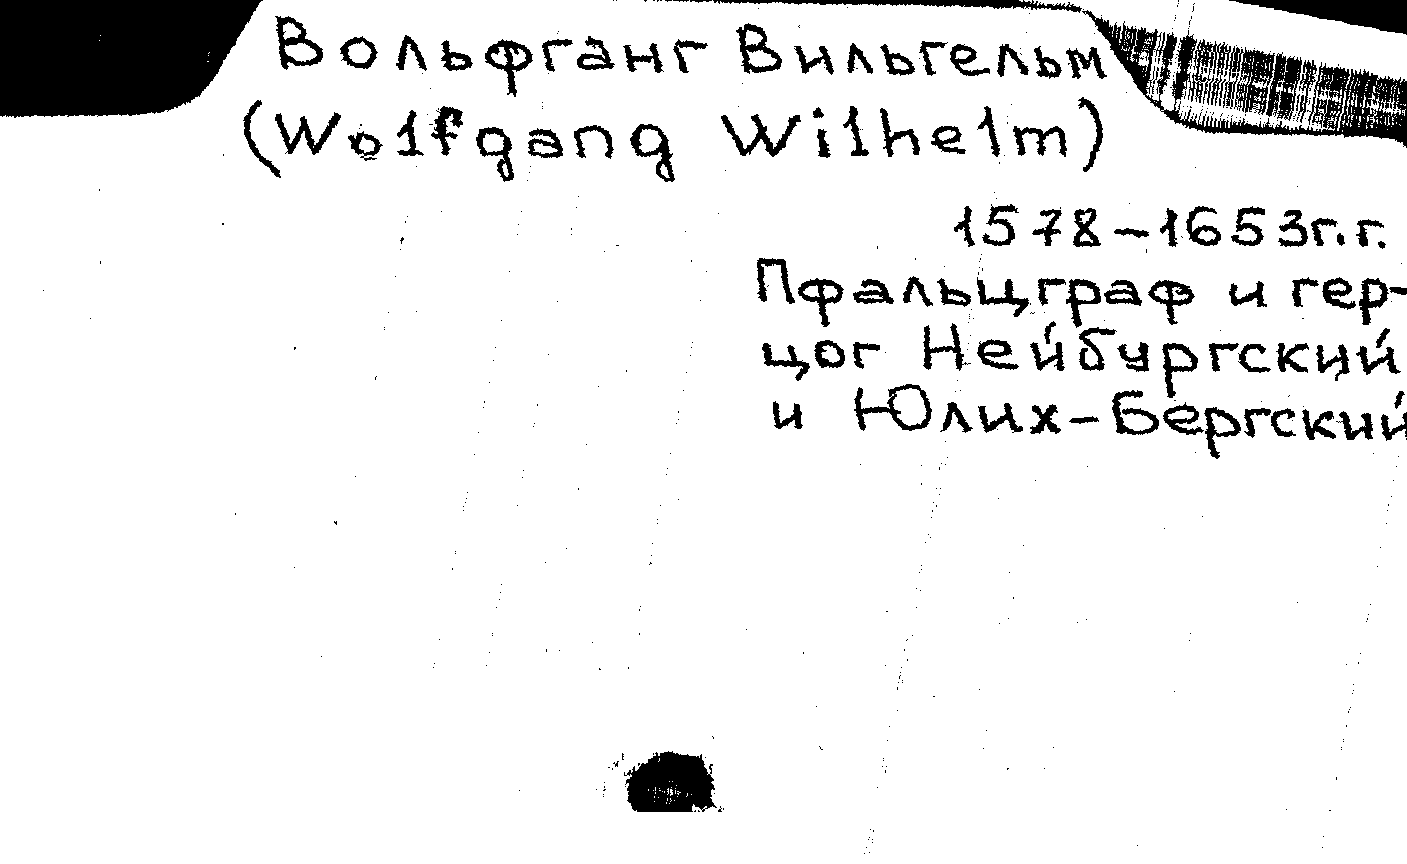 Вольфганг Вильгельм
(Wolfgang Wilhelm)
1578-1653г.г.
Пфальцграф и гер-
цог Нейбургский
и Юлих-Бергский